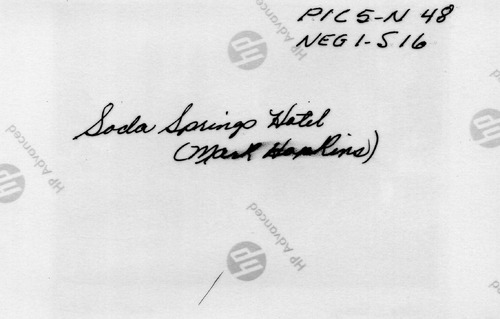 PIC 5-N 48
NEG 1-S 16
HP Advanced
hp
Soda Springs Hotel
(Mark Hopkins)
hp
HP Advanced
hp
HP Advanced
hp
HP Advanced